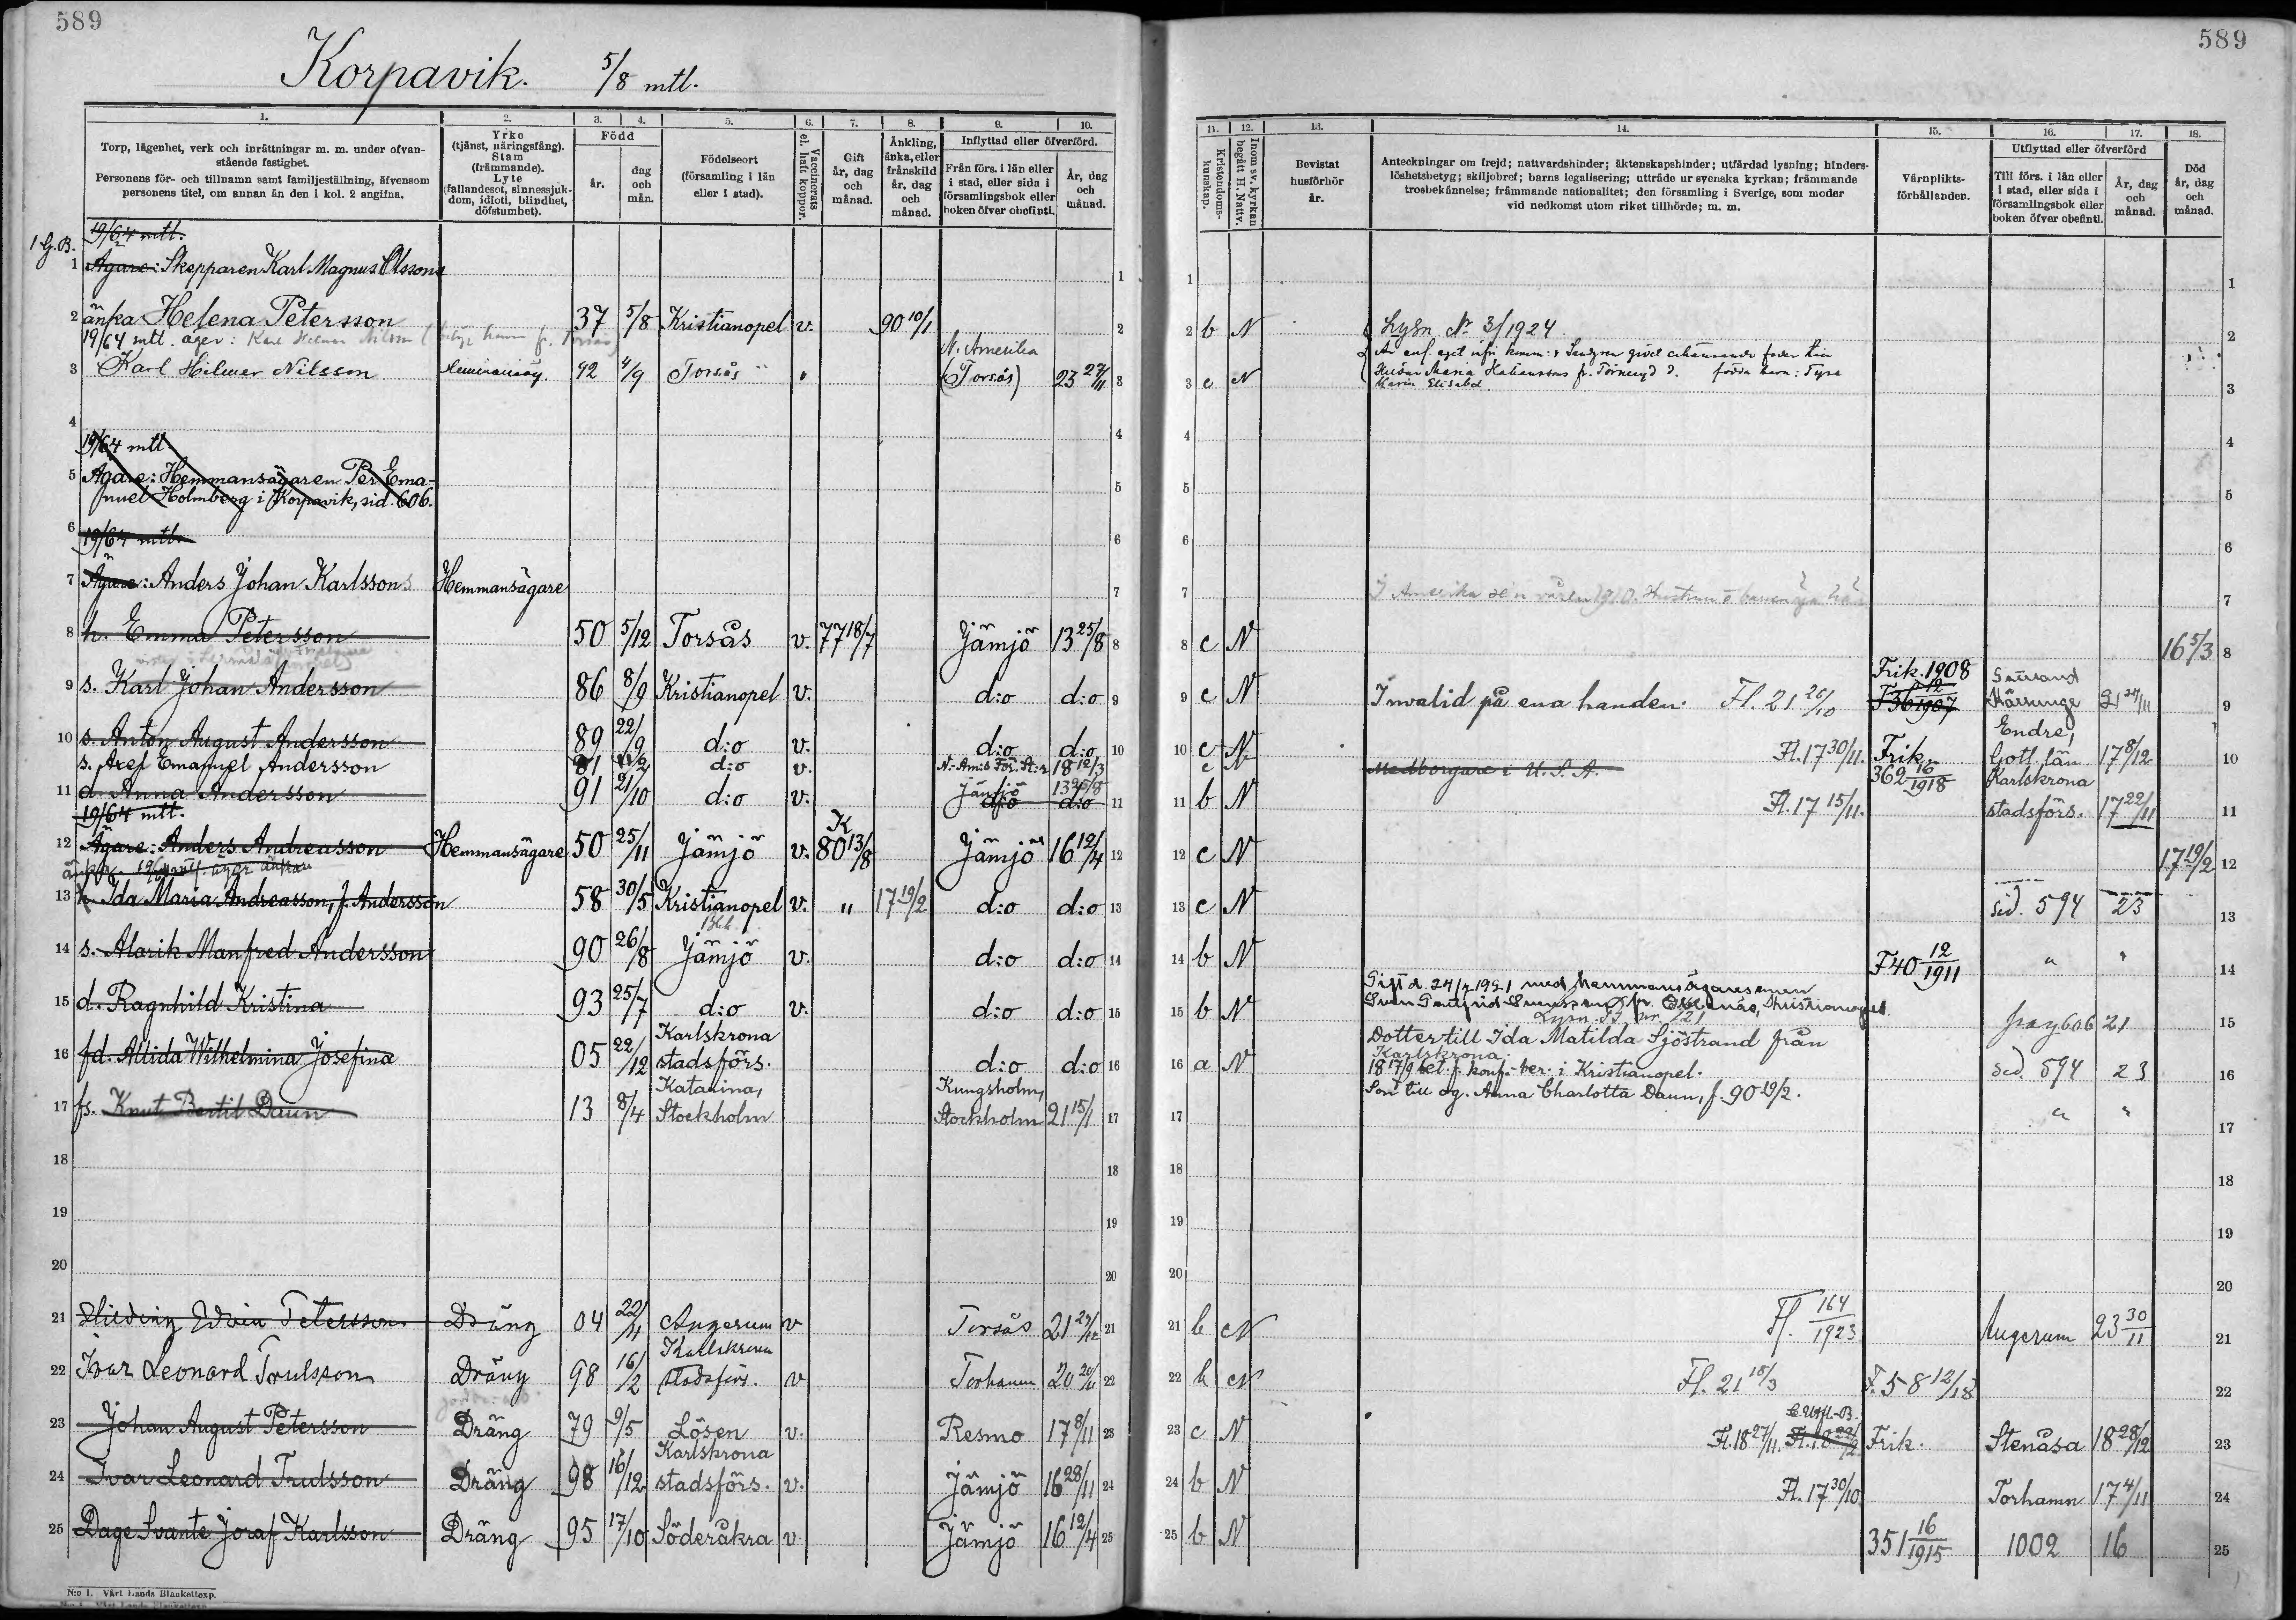 589
589
Korpavik. 5/8 mtl.
1.
2.
3.
4.
5.
6.
7.
8.
9.
10.
Torp, lägenhet, verk och inrättningar m. m. under ofvan-
stående fastighet.
Personens för- och tillnamn samt familjeställning, äfvensom
personens titel, om annan än den i kol. 2 angifna.
Yrke
(tjänst, näringsfång).
Stam
(främmande).
Lyte
(fallandesot, sinnessjuk-
dom, idioti, blindhet,
döfstumhet).
Född
år.
dag
och
mån.
Födelseort
(församling i län
eller i stad).
Vaccinerats
el. haft koppor.
Gift
år, dag
och
månad.
Änkling,
änka, eller
frånskild
år, dag
och
månad.
Inflyttad eller öfverförd.
Från förs. i län eller
i stad, eller sida i
församlingsbok eller
boken öfver obefintl.
År, dag
och
månad.
11.
12.
13.
14.
15.
16.
17.
18.
Kristendoms-
kunskap.
Inom sv. kyrkan
begått H. Nattv.
Bevistat
husförhör
år.
Anteckningar om frejd; nattvardshinder; äktenskapshinder; utfärdad lysning; hinders-
löshetsbetyg; skiljobref; barns legalisering; utträde ur svenska kyrkan; främmande
trosbekännelse; främmande nationalitet; den församling i Sverige, som moder
vid nedkomst utom riket tillhörde; m. m.
Värnplikts-
förhållanden.
Utflyttad eller öfverförd
Till förs. i län eller
i stad, eller sida i
församlingsbok eller
boken öfver obefintl.
År, dag
och
månad.
Död
år, dag
och
månad.
19/64 mtl.
1 G.B.
1 Ägare: Skepparen Karl Magnus Olssons 1 1 1
2 änka Helena Petersson 37 5/8 Kristianopel v. 90 10/1 2 2 b N Lysn. Nr 3/1924 2
19/64 mtl. äger: Karl Hilmer Nilsson
N. Amerika
3 Karl Hilmer Nilsson 92 4/9 Torsås (Torsås) 23 27/11 3 3 c N 3
Karin Elisabet
4 4 4 4
19/64 mtl
5 Ägare: Hemmansägaren Per Ema- 5 5 5
nuel Holmberg i Korpavik, sid. 606.
6 19/64 mtl. 6 6 6
7 Ägare: Anders Johan Karlssons Hemmansägare 7 7 I Amerika 7
8 h. Emma Petersson 50 5/12 Torsås v. 77 18/7 Jämjö 13 25/8 8 8 c N 16 5/3 8
Frik. 1908
9 s. Karl Johan Andersson 86 8/9 Kristianopel v. d:o d:o 9 9 c N Invalid på ena handen. Fl. 21 26/10 F36 12/1907 9
Endre,
10 s. Anton August Andersson 89 22/9 d:o v. d:o d:o 10 10 c N Fl. 17 30/11. Frik. Gotl. län 17 8/12 10
s. Axel Emanuel Andersson 81 d:o v. 18 12/3 c N Medborgare i U. S. A. 362 16/1918 Karlskrona
Jämjö 13 25/8
11 d. Anna Andersson 91 21/10 d:o v. d:o d:o 11 11 b N Fl. 17 15/11. stadsförs. 17 22/11 11
19/64 mtl.
K
12 Ägare: Anders Andreasson Hemmansägare 50 25/11 Jämjö v. 80 13/8 Jämjö 16 12/4 12 12 c N 17 19/2 12
13 h. Ida Maria Andreasson, f. Andersson 58 30/5 Kristianopel v. " 17 19/2 d:o d:o 13 13 c N sid. 594 23 13
Blek.
14 s. Alarik Manfred Andersson 90 26/8 Jämjö v. d:o d:o 14 14 b N F40 12/1911 " " 14
Gift d. 24/7 1921 med hemmansägaresonen
15 d. Ragnhild Kristina 93 25/7 d:o v. d:o d:o 15 15 b N 606 21 15
Karlskrona
Dotter till Ida Matilda Sjöstrand från
16 fd. Allida Wilhelmina Josefina 05 22/12 stadsförs. d:o d:o 16 16 a N Karlskrona. sid. 594 23 16
18 17/9 bet. f. konf.-ber. i Kristianopel.
Katarina, Kungsholm,
Son till og. Anna Charlotta Daun, f. 90 19/2.
17 fs. Knut Bertil Daun 13 8/4 Stockholm Stockholm 21 15/1 17 17 " " 17
18 18 18 18
19 19 19 19
20 20 20 20
21 Hilding Edvin Petersson Dräng 04 22/11 Augerum v Torsås 21 21 21 b N Fl. 164/1923 Augerum 23 30/11 21
Karlskrona
22 Ivar Leonard Trulsson Dräng 98 16/2 stadsförs. v Torhamn 20 20/11 22 22 b N Fl. 21 18/3 F. 58 12/18 22
23 Johan August Petersson Dräng 79 9/5 Lösen v. Resmo 17 8/11 23 23 c N Fl. 18 27/11. Frik. Stenåsa 18 28/12 23
Karlskrona
24 Ivar Leonard Trulsson Dräng 98 16/12 stadsförs. v. Jämjö 16 28/11 24 24 b N Fl. 17 30/10 Torhamn 17 4/11 24
25 Dage Svante Joraf Karlsson Dräng 95 17/10 Söderåkra v. Jämjö 16 12/4 25 25 b N 351 16/1915 1002 16 25
N:o 1. Vårt Lands Blankettexp.